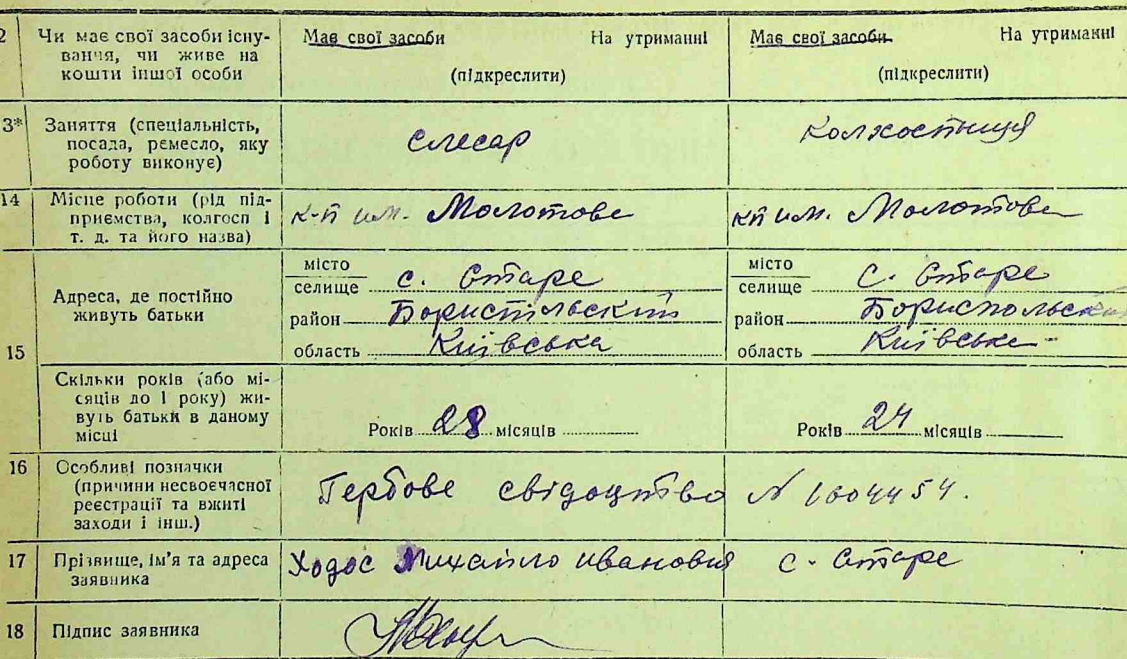 2 Чи має свої засоби існування, чи живе на кошти іншої особи
Має свої засоби На утриманні
(підкреслити)
Має свої засоби На утриманні
(підкреслити)
3* Заняття (спеціальність, посада, ремесло, яку роботу виконує)
слесар
колхостниця
14 Місце роботи (рід підприємства, колгосп і т. д. та його назва)
к-п им. Молотова
кп им. Молотова
15 Адреса, де постійно живуть батьки
місто
селище с. Старе
район Бориспільский
область Київська
місто
селище с. Старе
район Борисполский
область Київська
Скільки років (або місяців до 1 року) живуть батьки в даному місці
Років 28 місяців
Років 24 місяців
16 Особливі позначки (причини несвоєчасної реєстрації та вжиті заходи і інш.)
Гербове свідоцтво № 1604454.
17 Прізвище, ім'я та адреса заявника
Ходос Михайло Иванович с. Старе
18 Підпис заявника